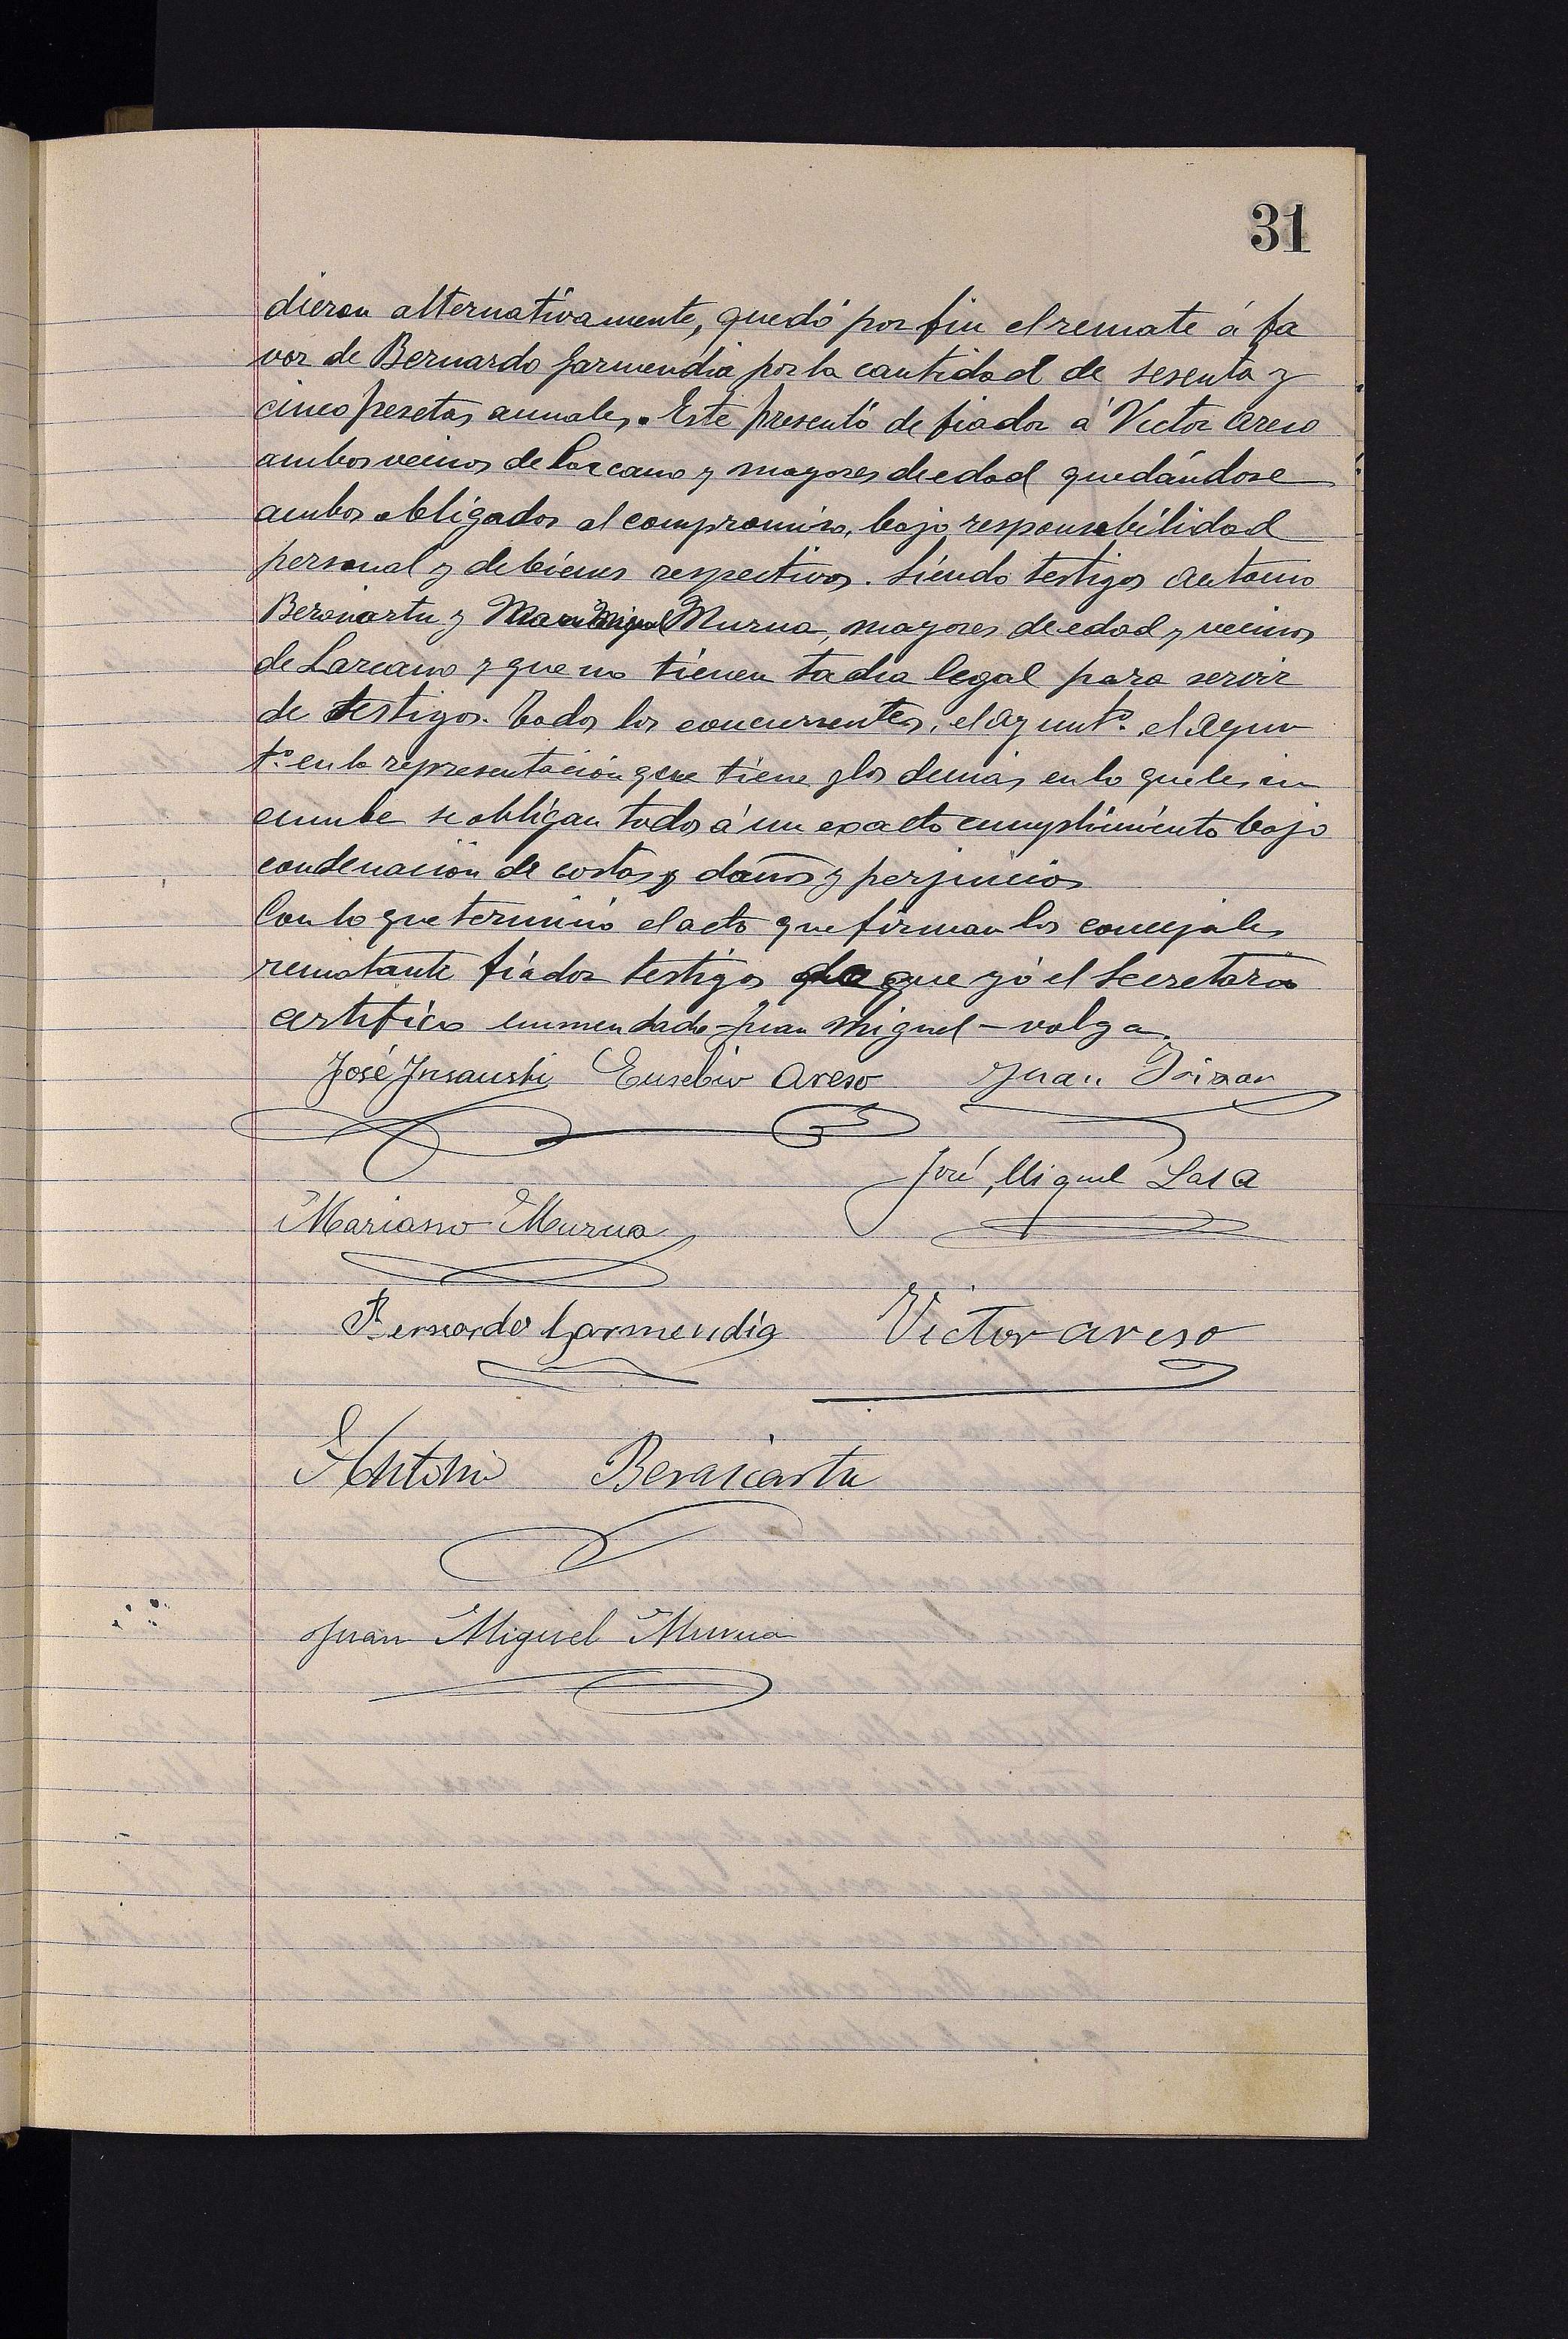 31
dieron alternativamente, quedó por fin el remate á fa
vor de Bernardo Garmendia por la cantidad de sesenta y
cinco pesetas anuales. Este presentó de fiador á Victor Areso
ambos vecinos de Lazcano y mayores de edad quedándose
ambos obligados al compromiso, bajo responsabilidad
personal y de bienes respectivos. Siendo testigos Antonio
Berasiartu y Juan Miguel Murua, mayores de edad y vecinos
de Lazcano y que no tienen tacha legal para servir
de testigos. Todos los concurrentes, el ayuntº. el Ayun
tº. en la representación que tiene y los demas en lo que les in
cumbe se obligan todos á un exacto cumplimiento bajo
condenación de costas y daños y perjuicios
Con lo que terminó el acto que firman los concejales
rematante fiador testigos de que yó el Secretario
certifico enmendado-Juan Miguel-valga.
José Insausti Eusebio Areso Juan Irizar
José Miguel Lasa
Mariano Murua
Bernardo Garmendia Victor Areso
Antonio Berasiartu
Juan Miguel Murua